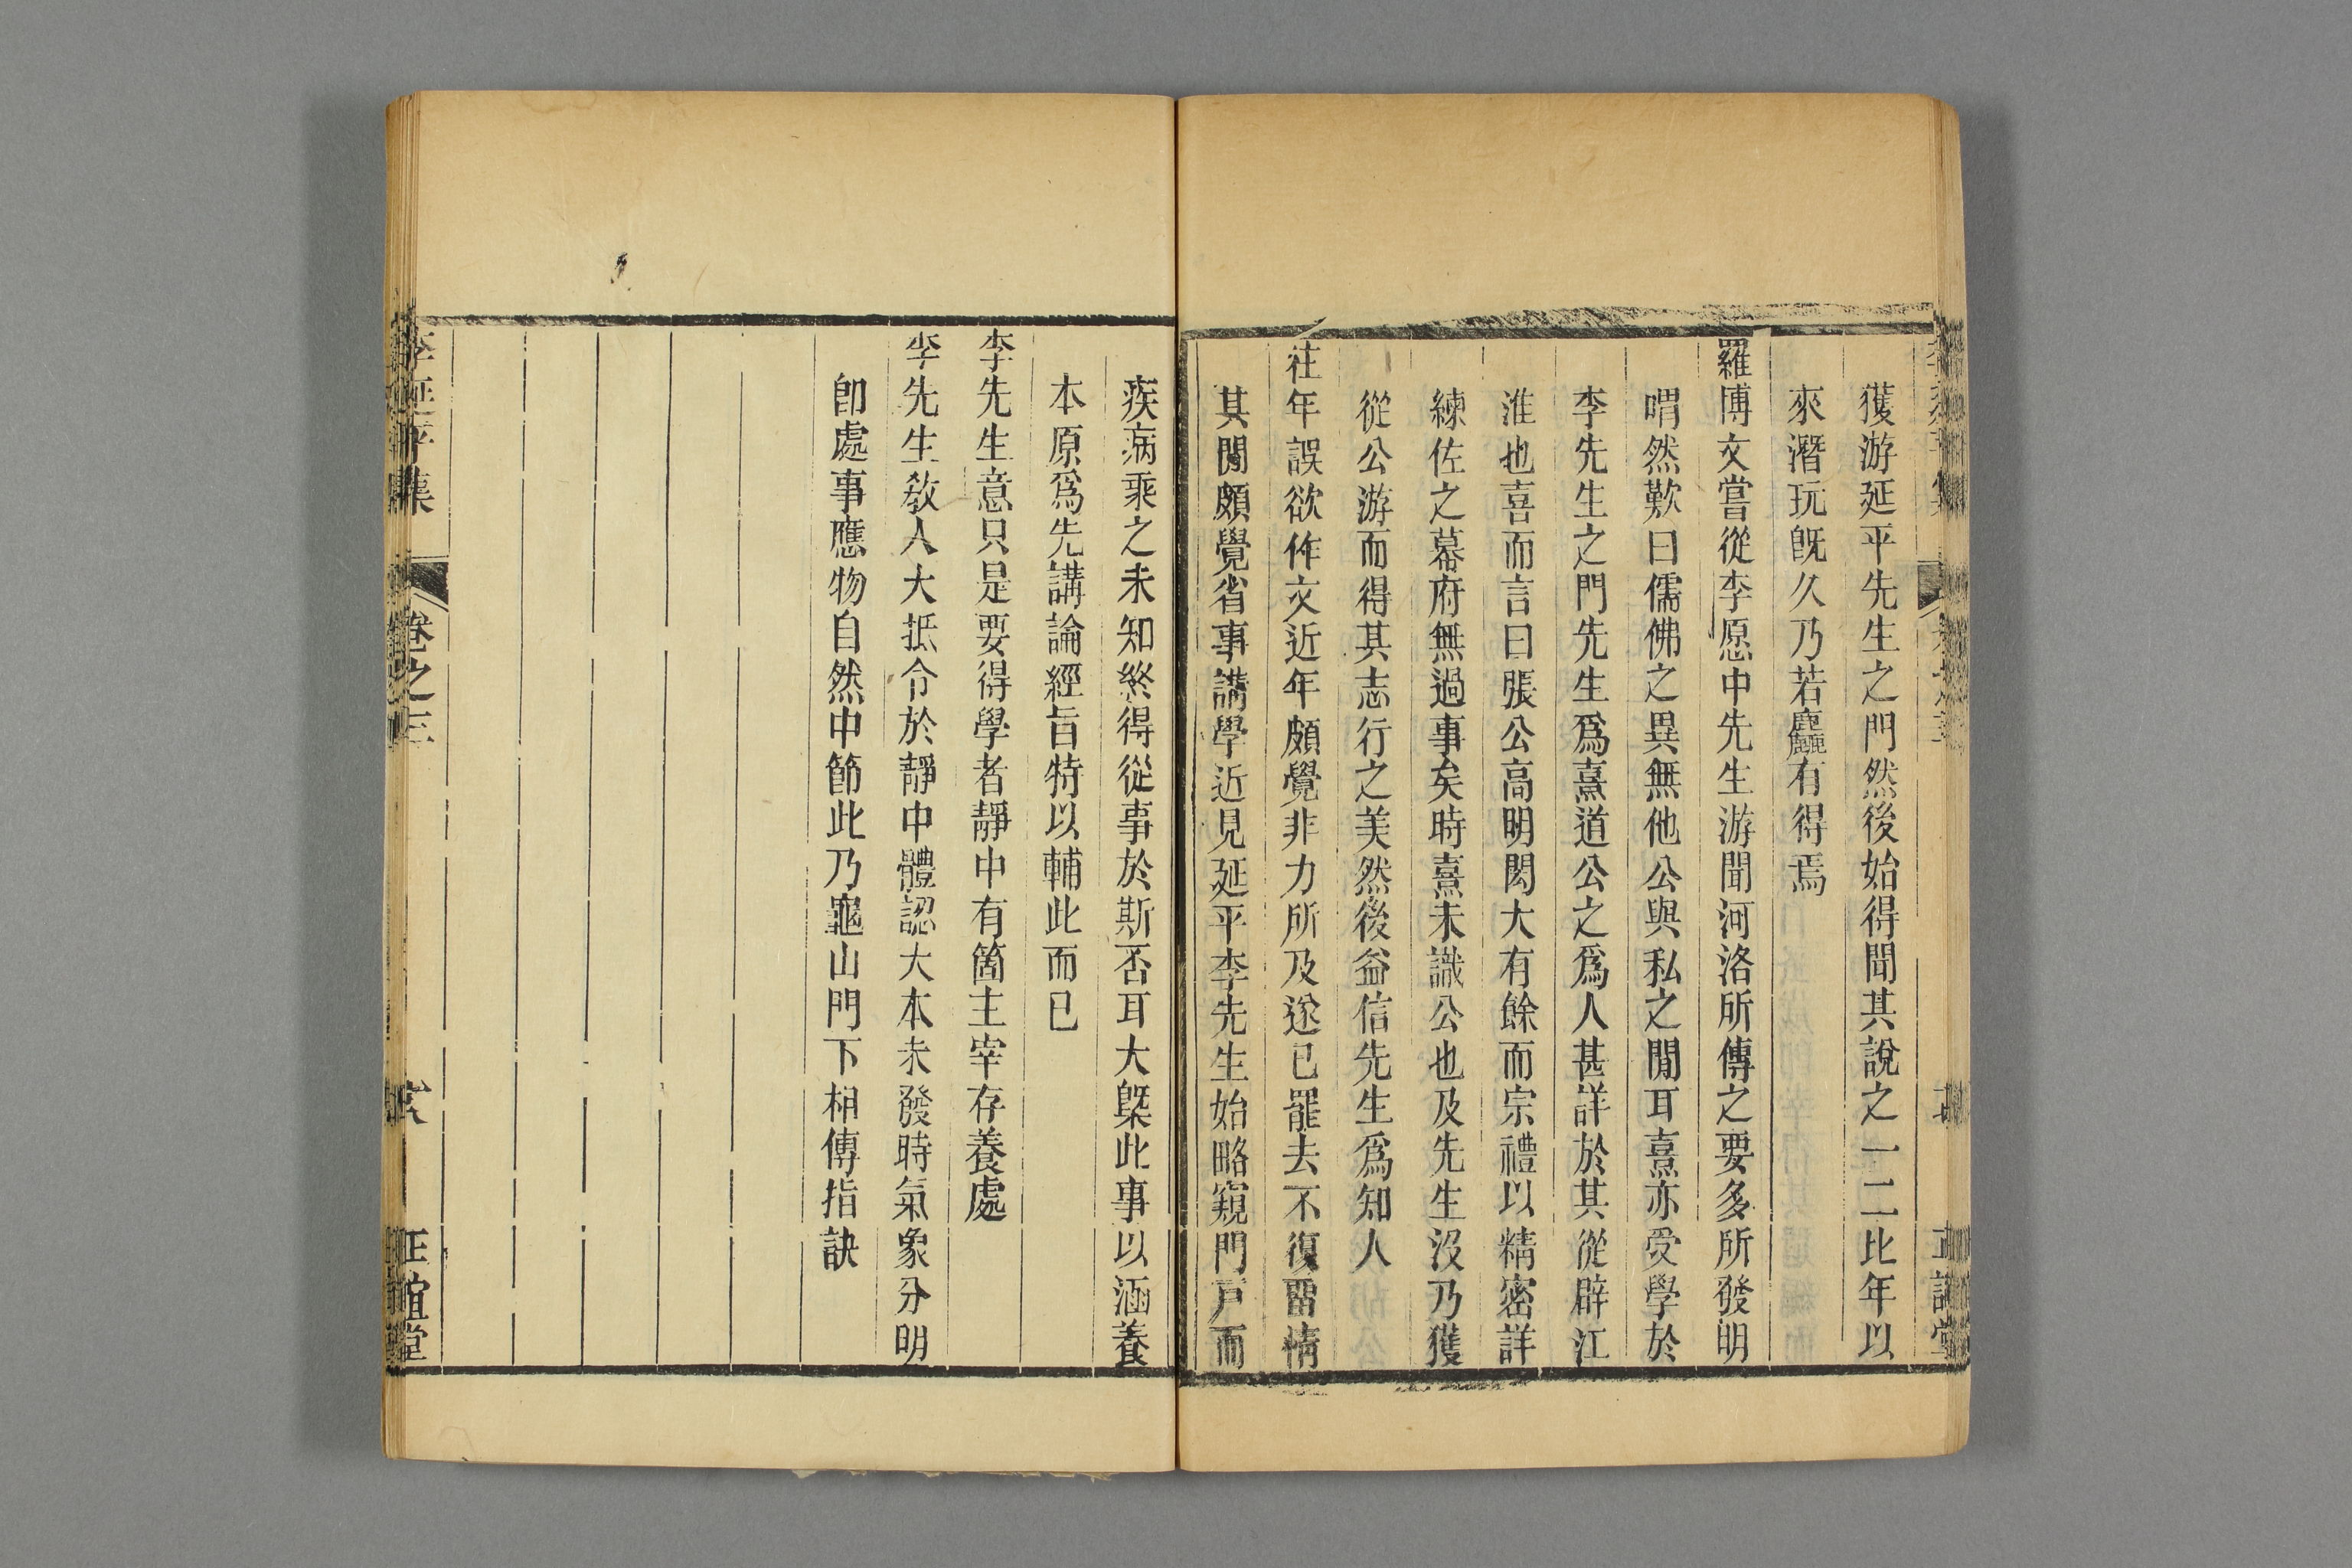 獲游延平先生之門然後始得聞其說之一二比年以
來潛玩旣久乃若麤有得焉
羅博文嘗從李愿中先生游聞河洛所傳之要多所發明
喟然歎曰儒佛之異無他公與私之閒耳熹亦受學於
李先生之門先生爲熹道公之爲人甚詳於其從辟江
淮也喜而言曰張公高明閎大有餘而宗禮以精密詳
練佐之幕府無過事矣時熹未識公也及先生沒乃獲
從公游而得其志行之美然後益信先生爲知人
往年誤欲作文近年頗覺非力所及遂已罷去不復畱情
其閒頗覺省事講學近見延平李先生始略窺門戸而
疾病乘之未知終得從事於斯否耳大槩此事以涵養
本原爲先講論經旨特以輔此而已
李先生意只是要得學者靜中有箇主宰存養處
李先生敎人大抵令於靜中體認大本未發時氣象分明
卽處事應物自然中節此乃龜山門下相傳指訣
李延平集
卷之三
正誼堂